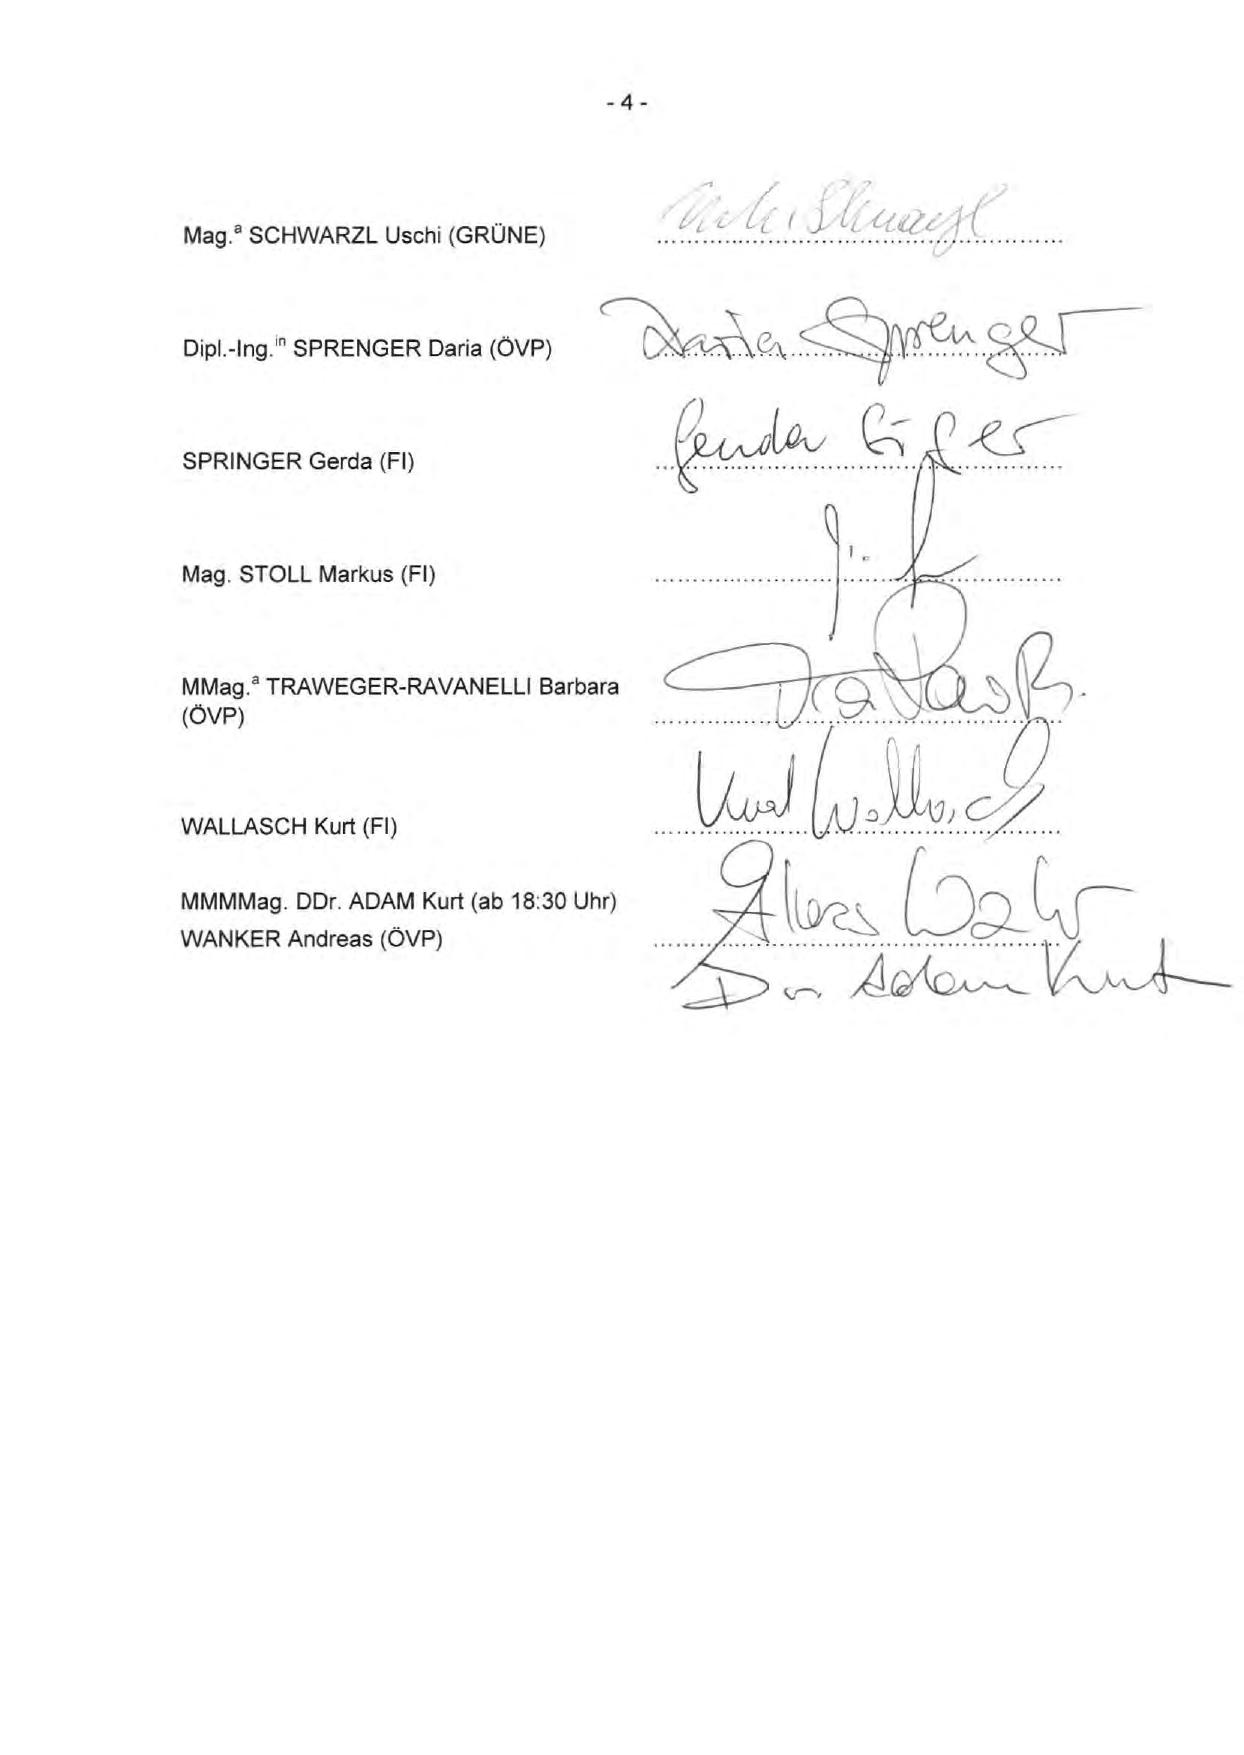 - 4 -
Mag.ª SCHWARZL Uschi (GRÜNE)
Dipl.-Ing.in SPRENGER Daria (ÖVP) Daria Sprenger
SPRINGER Gerda (FI) Gerda
Mag. STOLL Markus (FI)
MMag.ª TRAWEGER-RAVANELLI Barbara
(ÖVP)
WALLASCH Kurt (FI) Kurt Wallasch
MMMMag. DDr. ADAM Kurt (ab 18:30 Uhr)
WANKER Andreas (ÖVP)
Dr. Adam Kurt